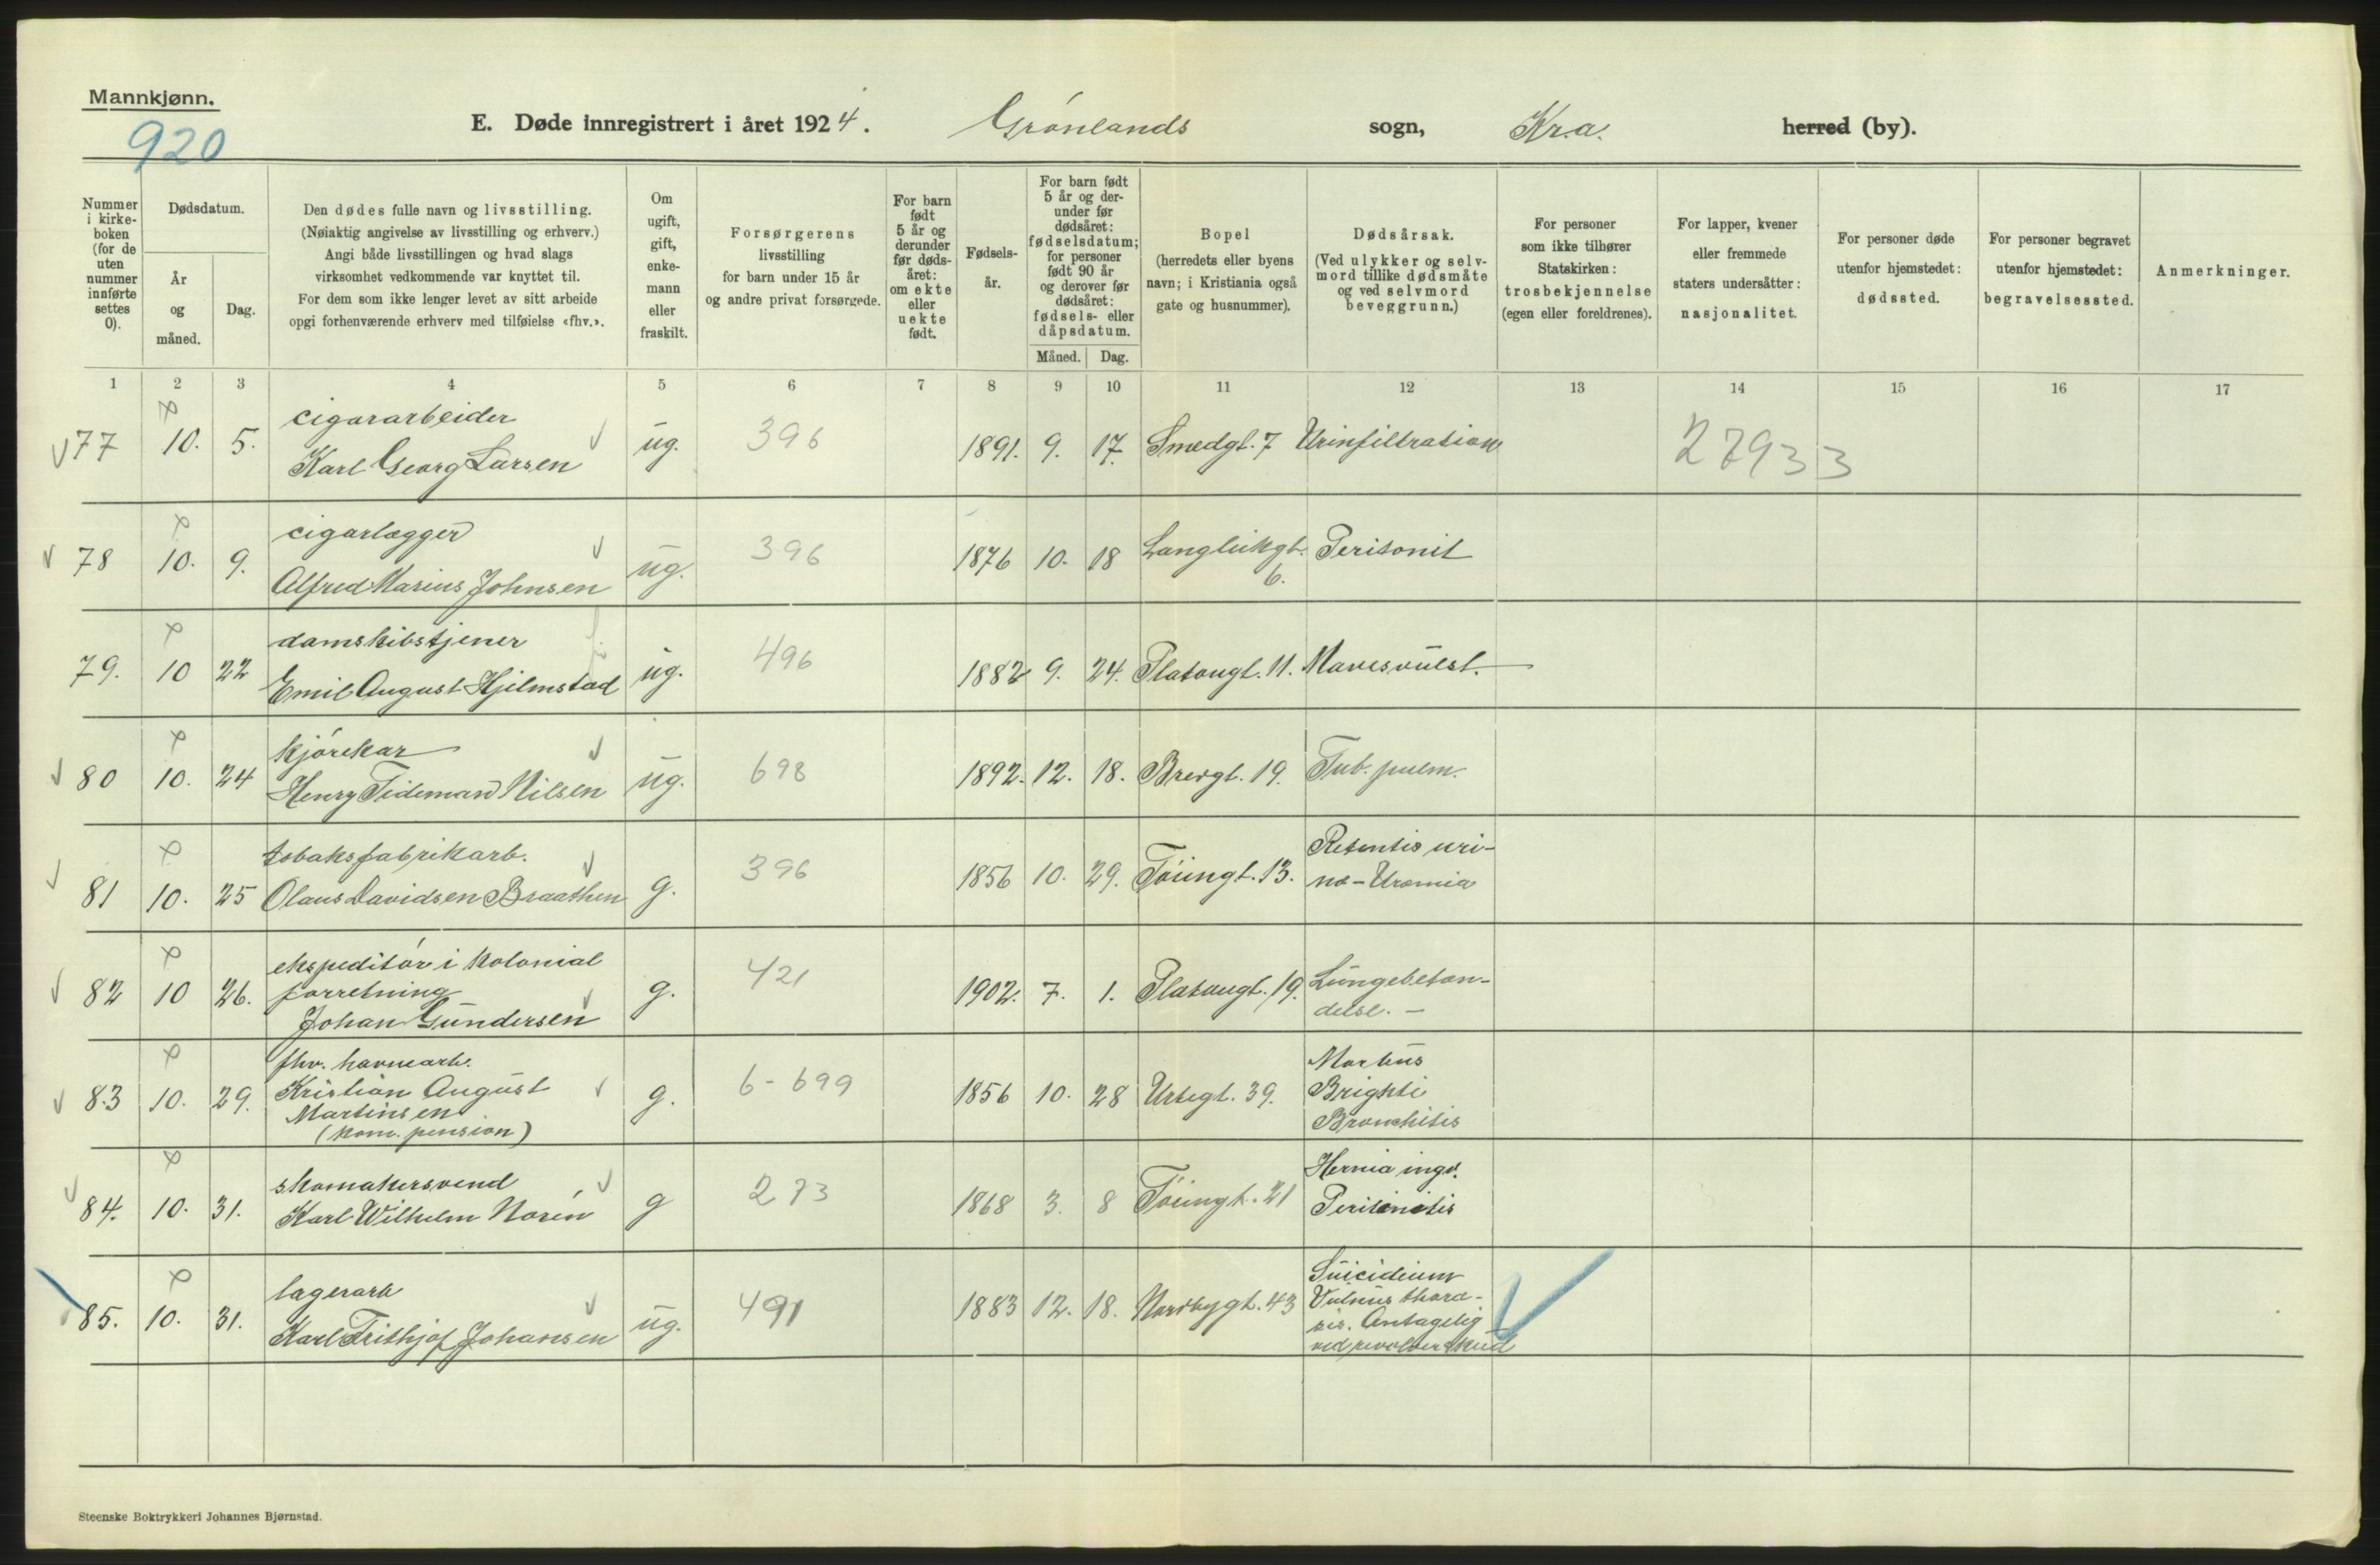 Mannkjønn.
920
E. Døde innregistrert i året 1924. Grönlands sogn, Kr.a. herred (by).
Nummer i kirkeboken (for de uten nummer innførte settes 0).
Dødsdatum.
År og måned.
Dag.
Den dødes fulle navn og livsstilling.
(Nøiaktig angivelse av livsstilling og erhverv.)
Angi både livsstillingen og hvad slags
virksomhet vedkommende var knyttet til.
For dem som ikke lenger levet av sitt arbeide
opgi forhenværende erhverv med tilføielse «fhv.».
Om ugift, gift, enkemann eller fraskilt.
Forsørgerens
livsstilling
for barn under 15 år
og andre privat forsørgede.
For barn født 5 år og derunder før dødsåret: om ekte eller uekte født.
Fødselsår.
For barn født 5 år og derunder før dødsåret: fødselsdatum; for personer født 90 år og derover før dødsåret: fødsels- eller dåpsdatum.
Måned. Dag.
Bopel
(herredets eller byens
navn; i Kristiania også
gate og husnummer).
Dødsårsak.
(Ved ulykker og selvmord tillike dødsmåte og ved selvmord beveggrunn.)
For personer
som ikke tilhører
Statskirken:
trosbekjennelse
(egen eller foreldrenes).
For lapper, kvener
eller fremmede
staters undersåtter:
nasjonalitet.
For personer døde
utenfor hjemstedet:
dødssted.
For personer begravet
utenfor hjemstedet:
begravelsessted.
Anmerkninger.
1 2 3 4 5 6 7 8 9 10 11 12 13 14 15 16 17
cigararbeider
77 10. 5. Karl Georg Larsen ug. 396 1891. 9. 17. Smedgt. 7 Urinfiltration 27933
cigarlægger
78 10. 9. Alfred Marius Johnsen ug. 396 1876 10. 18 Langleikgt. 6. Peritonit
damskibstjener
79. 10 22 Emil August Hjelmstad ug. 496 1882 9. 24. Platougt. 11. Mavesvulst.
kjörekar
80 10. 24 Henry Tideman Nilsen ug. 698 1892. 12. 18. Brevgt. 19. Tub. pulm.
tobaksfabrikarb.
81 10. 25 Olaus Davidsen Braathen g. 396 1856 10. 29. Töiengt. 13. Retentio urinæ - Uræmia
ekspeditör i kolonial
forretning
82 10 26. Johan Gundersen g. 421 1902. 7. 1. Platougt. 19. Lungebetændelse. -
fhv. havnearb.
83 10. 29. Kristian August
Martinsen
(kom. pension) g. 6-699 1856 10. 28 Urtegt. 39. Morbus
Brighti
Bronchitis
skomakersvend
84. 10. 31. Karl Wilhelm Norén g 273 1868 3. 8 Töiengt. 21 Hernia ingv.
Peritonitis
lagerarb
85. 10. 31. Karl Frithjof Johansen ug. 491 1883 12. 18. Nordbygt. 43 Suicidium
Vulnus thoracis. Antagelig
ved revolverskud
Steenske Boktrykkeri Johannes Bjørnstad.